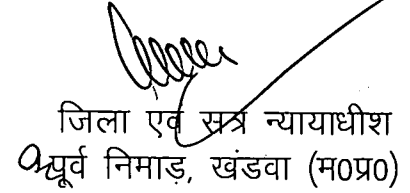 जिला एवं सत्र न्यायाधीश
पूर्व निमाड़, खंडवा (म0प्र0)